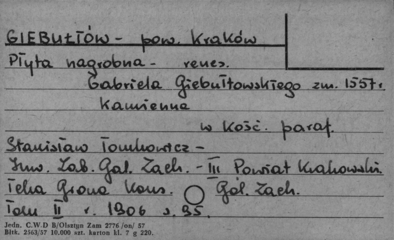 GIEBUŁTÓW - pow. Kraków
Płyta nagrobna - renes.
Gabriela Giebułtowskiego zm. 1557 r.
Kamienna
w Kość. paraf.
Stanisław Tomkowicz -
Inw. Zab. Gal. Zach. - III Powiat Krakowski
Teka Grona Kons. Gal. Zach.
Tom II r. 1906 s. 95.
Jedn. C.W D B/Olsztyn Zam 2776 /on/ 57
Błtk. 2563/57 10.000 szt. karton kl. 7 g 220.